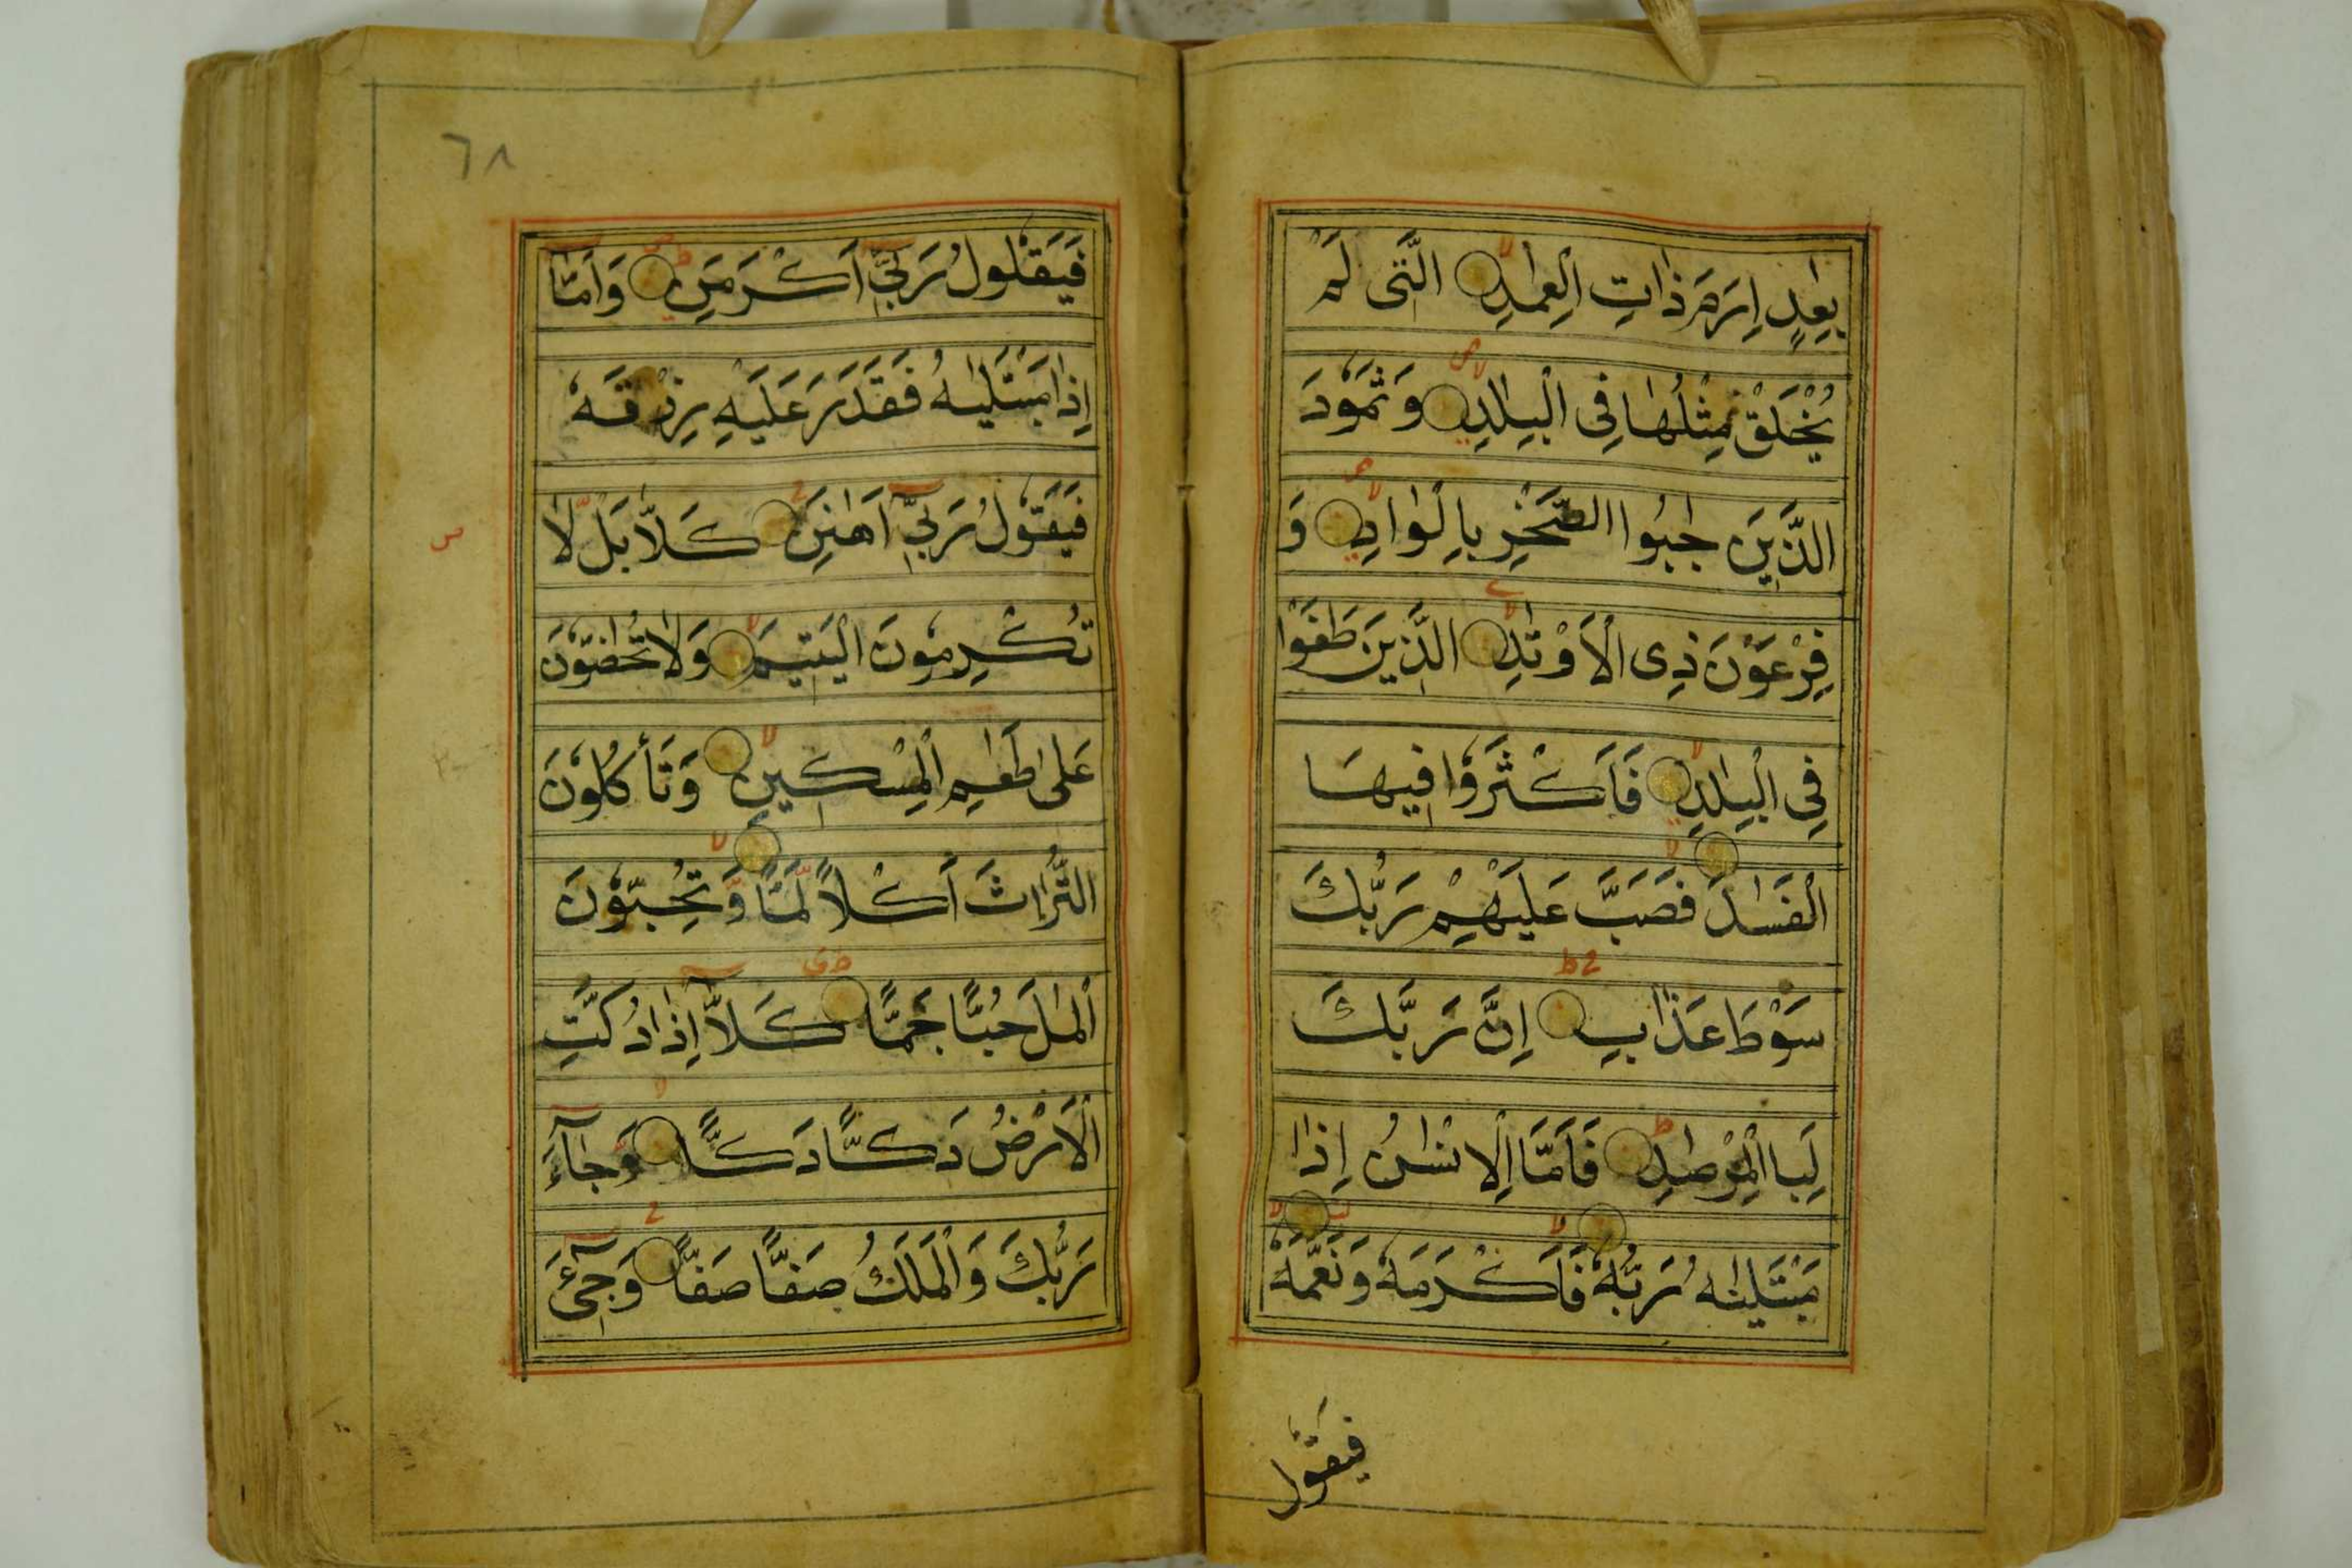 بِعٰدٍ اِرَمَ ذٰاتِ الْعِمٰدِ الَّتٖى لَمْ
يُخْلَقْ مِثْلُهٰا فِى الْبِلٰدِ وَ ثَمُوْدَ
الَّذٖيْنَ جٰبُوا الصَّخْرِ بِالْوٰادِ وَ
فِرْعَوْنَ ذِى الْاَوْتٰدِ الَّذٖينَ طَغَوْا
فِى الْبِلٰدِ فَاَكْثَرُوْا فٖيهَا
الْفَسٰدَ فَصَبَّ عَلَيْهِمْ رَبُّكَ
سَوْطَ عَذٰابٍ اِنَّ رَبَّكَ
لَبِا الْمِرْصٰدِ فَاَمَّا الْاِنْسٰنُ اِذٰا
مَبْتَلٰيٰهُ رَبُّهُ فَاَكْرَمَهُ وَ نَعَّمَهُ
فيقول
٦٨
فَيَقُوْلُ رَبّٖىٓ اَكْرَمَنِ وَ اَمَّآ
اِذٰا مَبْتَلٰيهُ فَقَدَرَ عَلَيْهِ رِزْقَهُ
فَيَقُوْلُ رَبّٖىٓ اَهٰنَنِ كَلَّا بَلْ لٰا
تُكْرِمُوْنَ الْيَتٖيمَ وَلٰا تَحٰضُّوْنَ
عَلٰى طَعٰمِ الْمِسْكٖينِ وَ تَأْكُلُوْنَ
التُّرٰاثَ اَكْلًا لَمًّا وَّ تُحِبُّوْنَ
الْمٰلَ حُبًّا جَمًّا كَلَّآ اِذٰا دُكَّتِ
الْاَرْضُ دَكًّا دَكًّا وَّ جٰٓاءَ
رَبُّكَ وَ الْمَلَكُ صَفًّا صَفًّا وَ جٖٓىْءَ